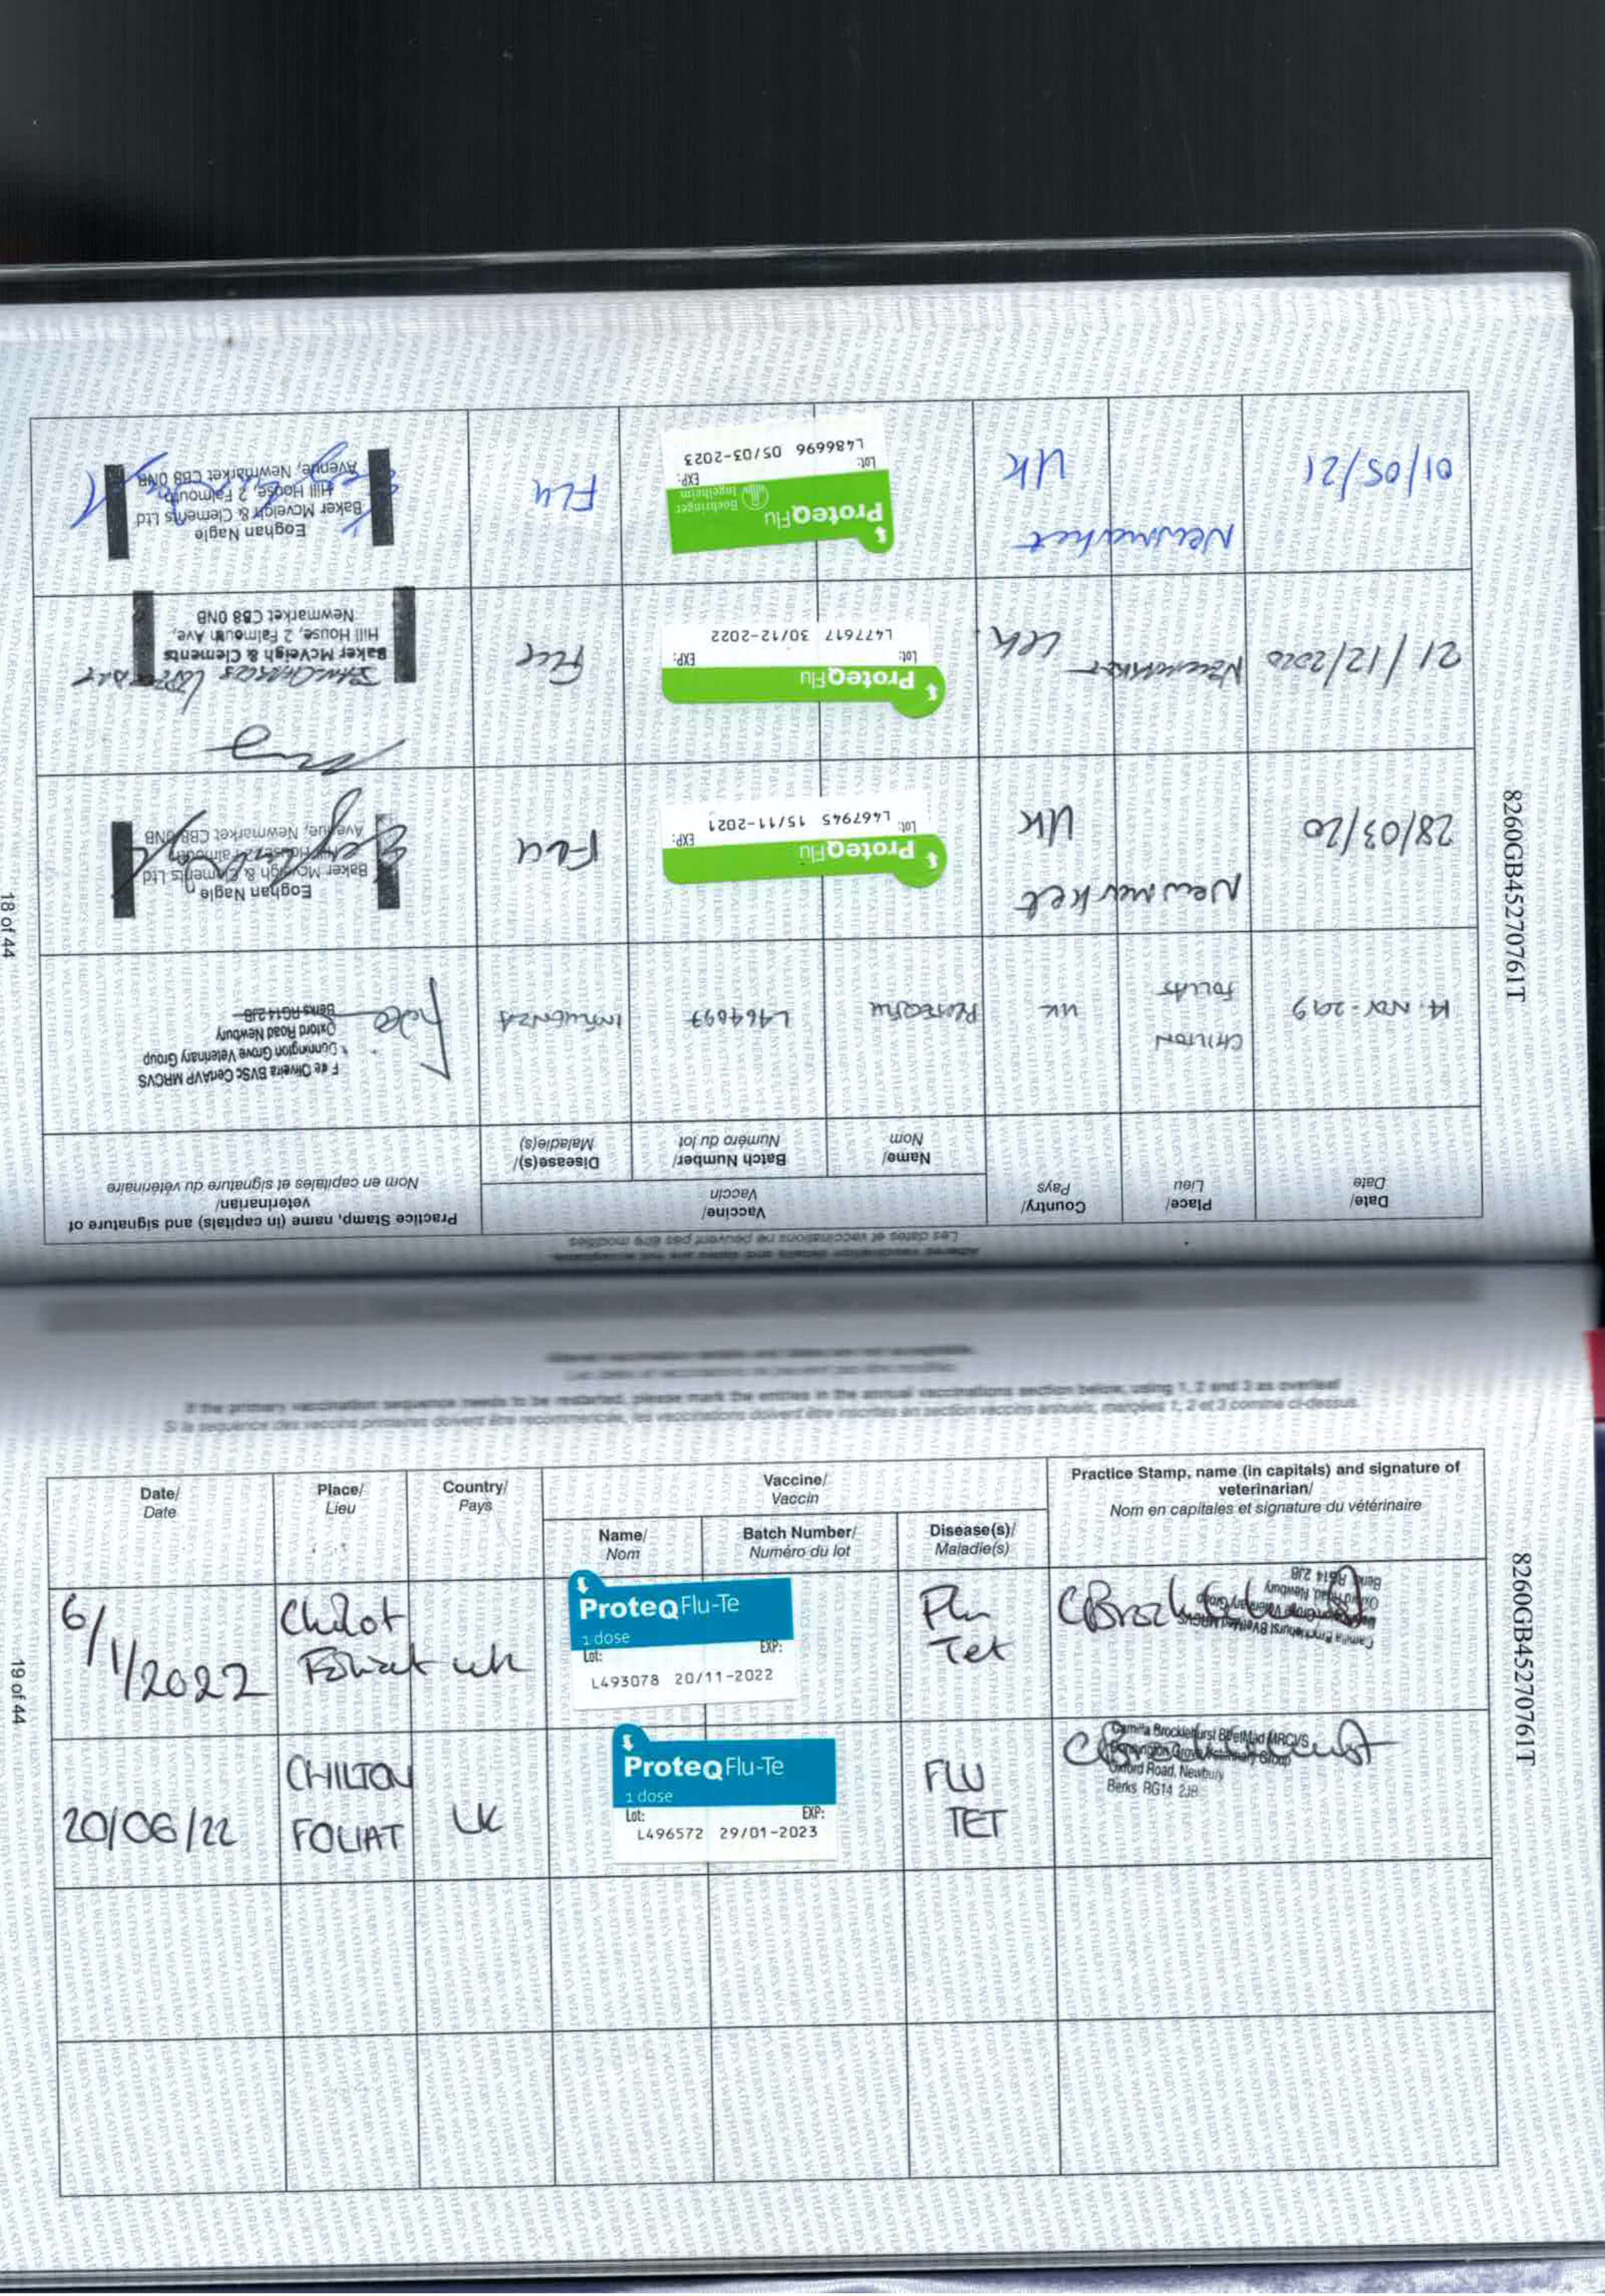 Altered vaccination details and dates are not acceptable.
Les dates et vaccinations ne peuvent pas être modifiés
Date/ Date
Place/ Lieu
Country/ Pays
Vaccine/ Vaccin
Name/ Nom
Batch Number/ Numéro du lot
Disease(s)/ Maladie(s)
Practice Stamp, name (in capitals) and signature of
veterinarian/
Nom en capitales et signature du vétérinaire
14. NOV. 2019
CHILTON
FOLIAT
UK
PROTEQFLU
INFLUENZA
F de Oliveira BVSc CertAVP MRCVS
Donnington Grove Veterinary Group
Oxford Road Newbury
Berks RG14 2JB
28/03/20
Newmarket
UK
ProteqFlu
Lot: EXP:
L467945 15/11-2021
Flu
Eoghan Nagle
Baker Mcveigh & Clements Ltd
Hill House, 2 Falmouth
Avenue, Newmarket CB8 0NB
21/12/2020
Newmarket
UK
ProteqFlu
Lot: EXP:
L477617 30/12-2022
Flu
Baker McVeigh & Clements
Hill House, 2 Falmouth Ave,
Newmarket CB8 0NB
01/05/21
Newmarket
UK
ProteqFlu
Boehringer
Ingelheim
Lot: EXP:
L486696 05/03-2023
Flu
Eoghan Nagle
Baker Mcveigh & Clements Ltd
Hill House, 2 Falmouth
Avenue, Newmarket CB8 0NB
8260GB45270761T
18 of 44
Altered vaccination details and dates are not acceptable.
Les dates et vaccinations ne peuvent pas être modifiés
If the primary vaccination sequence needs to be restarted, please mark the entries in the annual vaccinations section below, using 1, 2 and 3 as overleaf
Si la séquence des vaccins primaires doivent être recommencée, les vaccinations doivent être inscrites en section vaccins annuels, marquées 1, 2 et 3 comme ci-dessus.
Date/ Date
Place/ Lieu
Country/ Pays
Vaccine/ Vaccin
Name/ Nom
Batch Number/ Numéro du lot
Disease(s)/ Maladie(s)
Practice Stamp, name (in capitals) and signature of
veterinarian/
Nom en capitales et signature du vétérinaire
6/1/2022
Foliat
uk
ProteqFlu-Te
1 dose
Lot: EXP:
L493078 20/11-2022
Flu
Tet
CBrocklehurst
Camilla Brocklehurst BVetMed MRCVS
Donnington Grove Veterinary Group
Oxford Road, Newbury
Berks RG14 2JB
20/06/22
CHILTON
FOLIAT
UK
ProteqFlu-Te
1 dose
Lot: EXP:
L496572 29/01-2023
FLU
TET
CBrocklehurst
Camilla Brocklehurst BVetMed MRCVS
Donnington Grove Veterinary Group
Oxford Road, Newbury
Berks RG14 2JB
8260GB45270761T
19 of 44